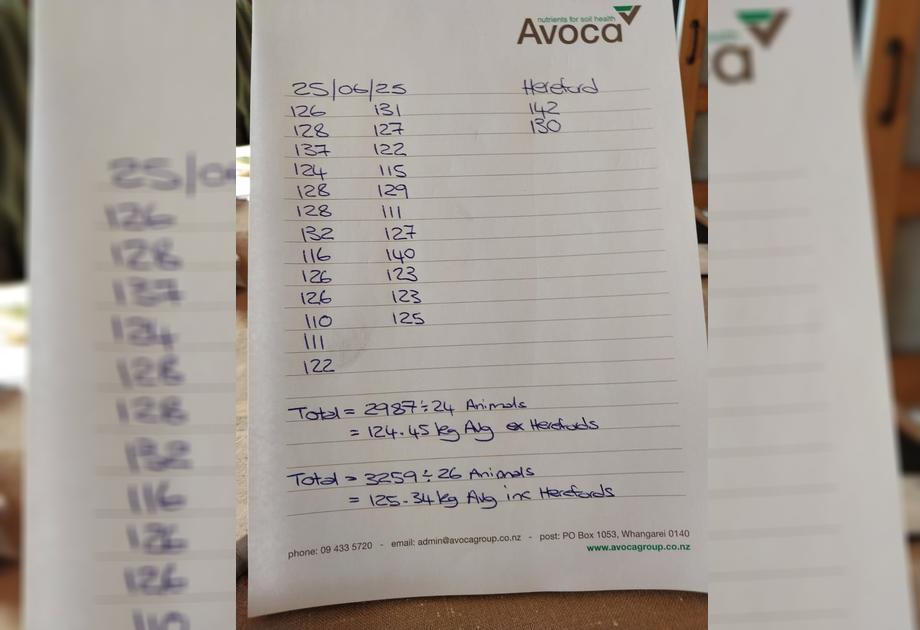 nutrients for soil health
Avoca
25/06/25 Hereford
126 131 142
128 127 130
137 122
124 115
128 129
128 111
132 127
116 140
126 123
126 123
110 125
111
122
Total = 2987÷24 Animals
= 124.45 kg Avg ex Herefords
Total = 3259÷26 Animals
= 125.34 kg Avg inc Herefords
phone: 09 433 5720 - email: admin@avocagroup.co.nz - post: PO Box 1053, Whangarei 0140
www.avocagroup.co.nz